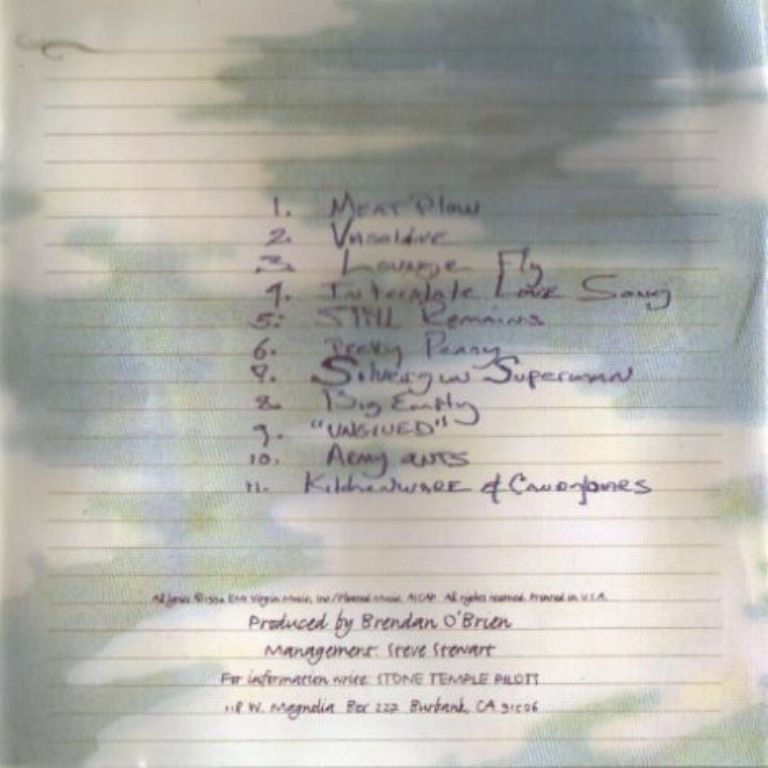 1. MEAT PLOW
2. Vasoline
3. Lounge Fly
4. Interstate Love Song
5. STILL Remains
6. Pretty Penny
7. Silvergun Superman
8. Big Empty
9. "UNGLUED"
10. ARMY ANTS
11. KitchenwARE & Candybares
All lyrics © 1994 EMI Virgin Music, Inc./Floated Music. ASCAP. All rights reserved. Printed in U.S.A.
Produced by Brendan O'Brien
Management: Steve Stewart
For information write: STONE TEMPLE PILOTS
118 W. Magnolia Box 227 Burbank, CA 91506